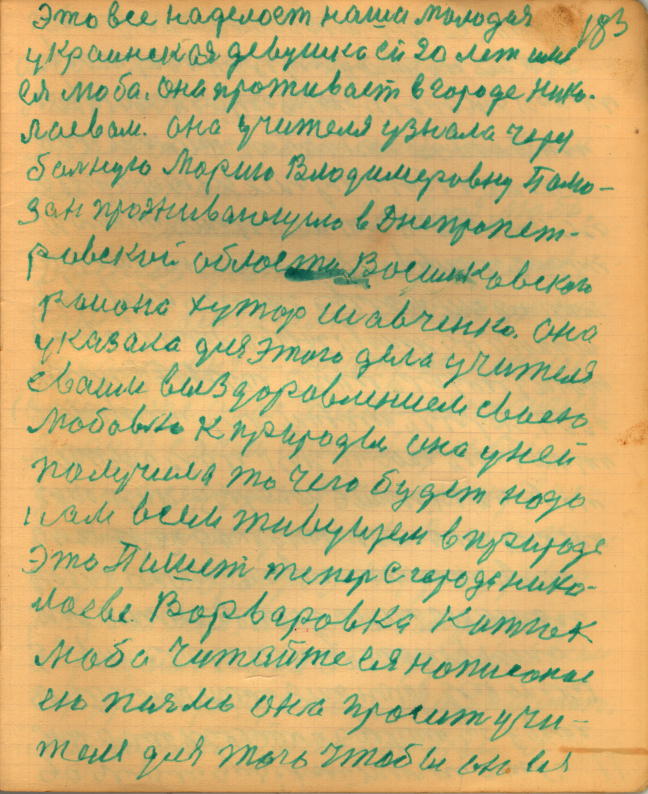 183
Это все наделоет наша молодая
украинская девушка ей 20 лет имя
ея Люба. Она проживает в городе Нико-
лаевам. она учителя узнала через
больную Марию Владимеровну
проживающую в Днепропет-
ровской области
района хутор Шавченко. Она
указала для этого дела учителя
сваим выздоровлением своею
любовью к природы она у ней
получила то чего будет надо
нам всем живущем в природе
Это Пишет тепер с города нико-
лаева. Ворваровка
Люба Читайте ея
ею она просит учи-
теля для того чтобы он ея